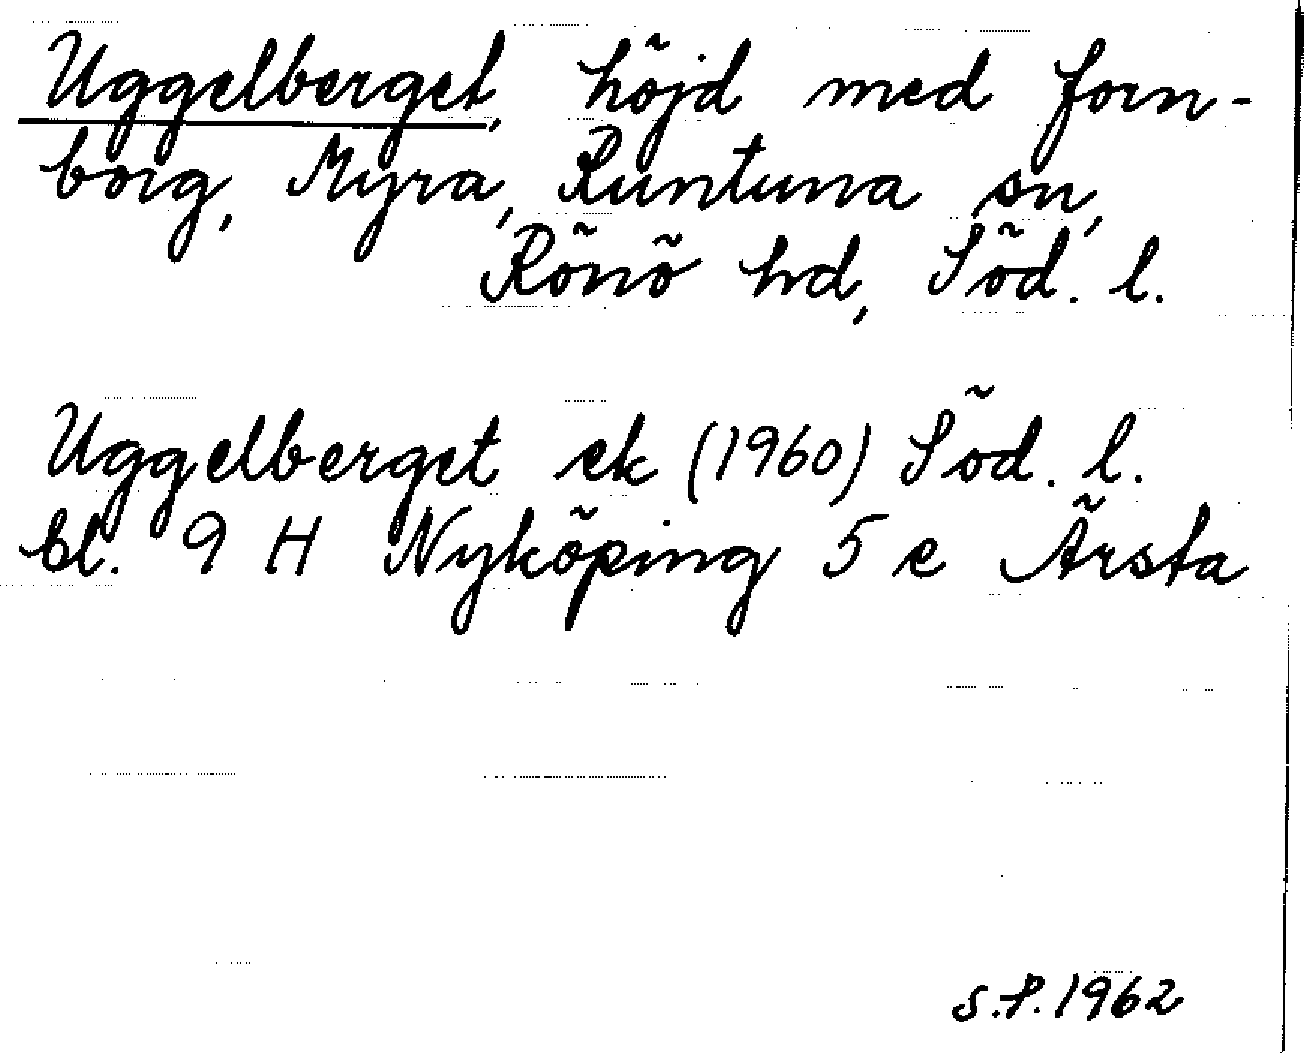 Uggelberget, höjd med forn-
borg, Myra, Runtuna sn,
Rönö hd, Söd. l.
Uggelberget ek (1960) Söd. l.
bl. 9 H Nyköping 5 e Årsta
S.P. 1962